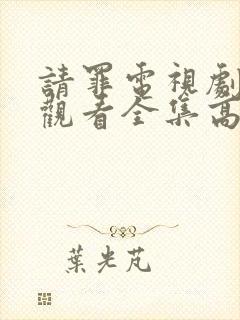 請罪電視劇
觀看全集高
葉光芃